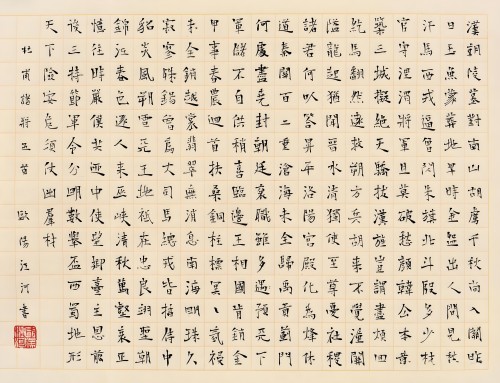 漢朝陵墓對南山胡虜千秋尚入關昨
日玉魚蒙葬地早時金出人間見愁
汗馬西戎逼曾閃朱旗北斗殷多少材
官守涇渭將軍且莫破愁顏韓公本意
築三城擬絕天驕拔漢旌豈謂盡煩回
紇馬翻然遠救朔方兵胡來不覺潼關
隘龍起猶聞晉水清獨使至尊憂社稷
諸君何以答昇平洛陽宮殿化為烽休
道秦關百二重滄海未全歸禹貢薊門
何處盡堯封朝廷袞職雖多預天下
軍儲不自供稍喜臨邊王相國肯銷金
甲事春農回首扶桑銅柱標冥冥氛祲
未全銷越裳翡翠無消息南海明珠久
寂寥殊錫曾為大司馬總戎皆插侍中
貂炎風朔雪天王地只在忠良翊聖朝
錦江春色逐人來巫峽清秋萬壑哀正
憶往時嚴僕射共迎中使望鄉臺主恩前
後三持節軍令分明數舉杯西蜀地形
天下險安危須仗出群材
杜甫諸將五首 歐陽江河書